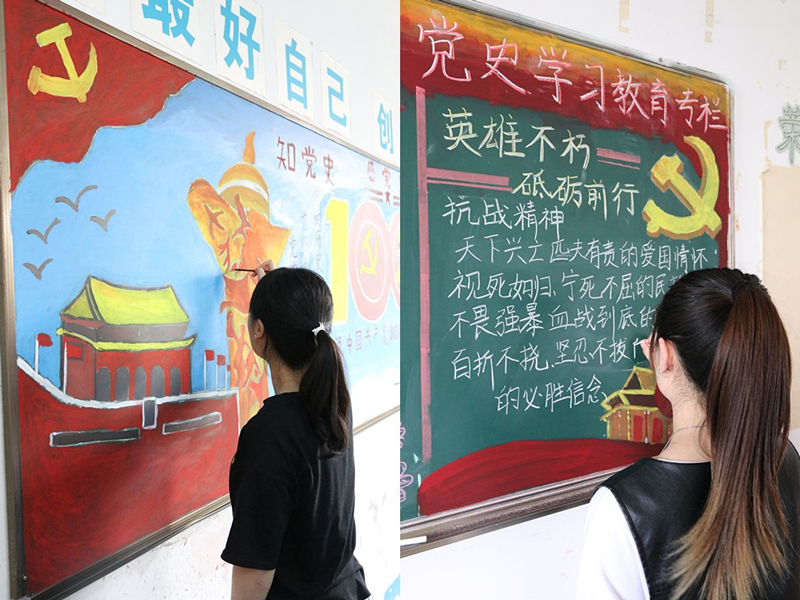 最好自己 创
知党史 感党
100
中国共产党
党史学习教育专栏
英雄不朽
砥砺前行
抗战精神
天下兴亡 匹夫有责的爱国情怀
视死如归、宁死不屈的民
不畏强暴 血战到底的
百折不挠、坚忍不拔
的必胜信念
荣